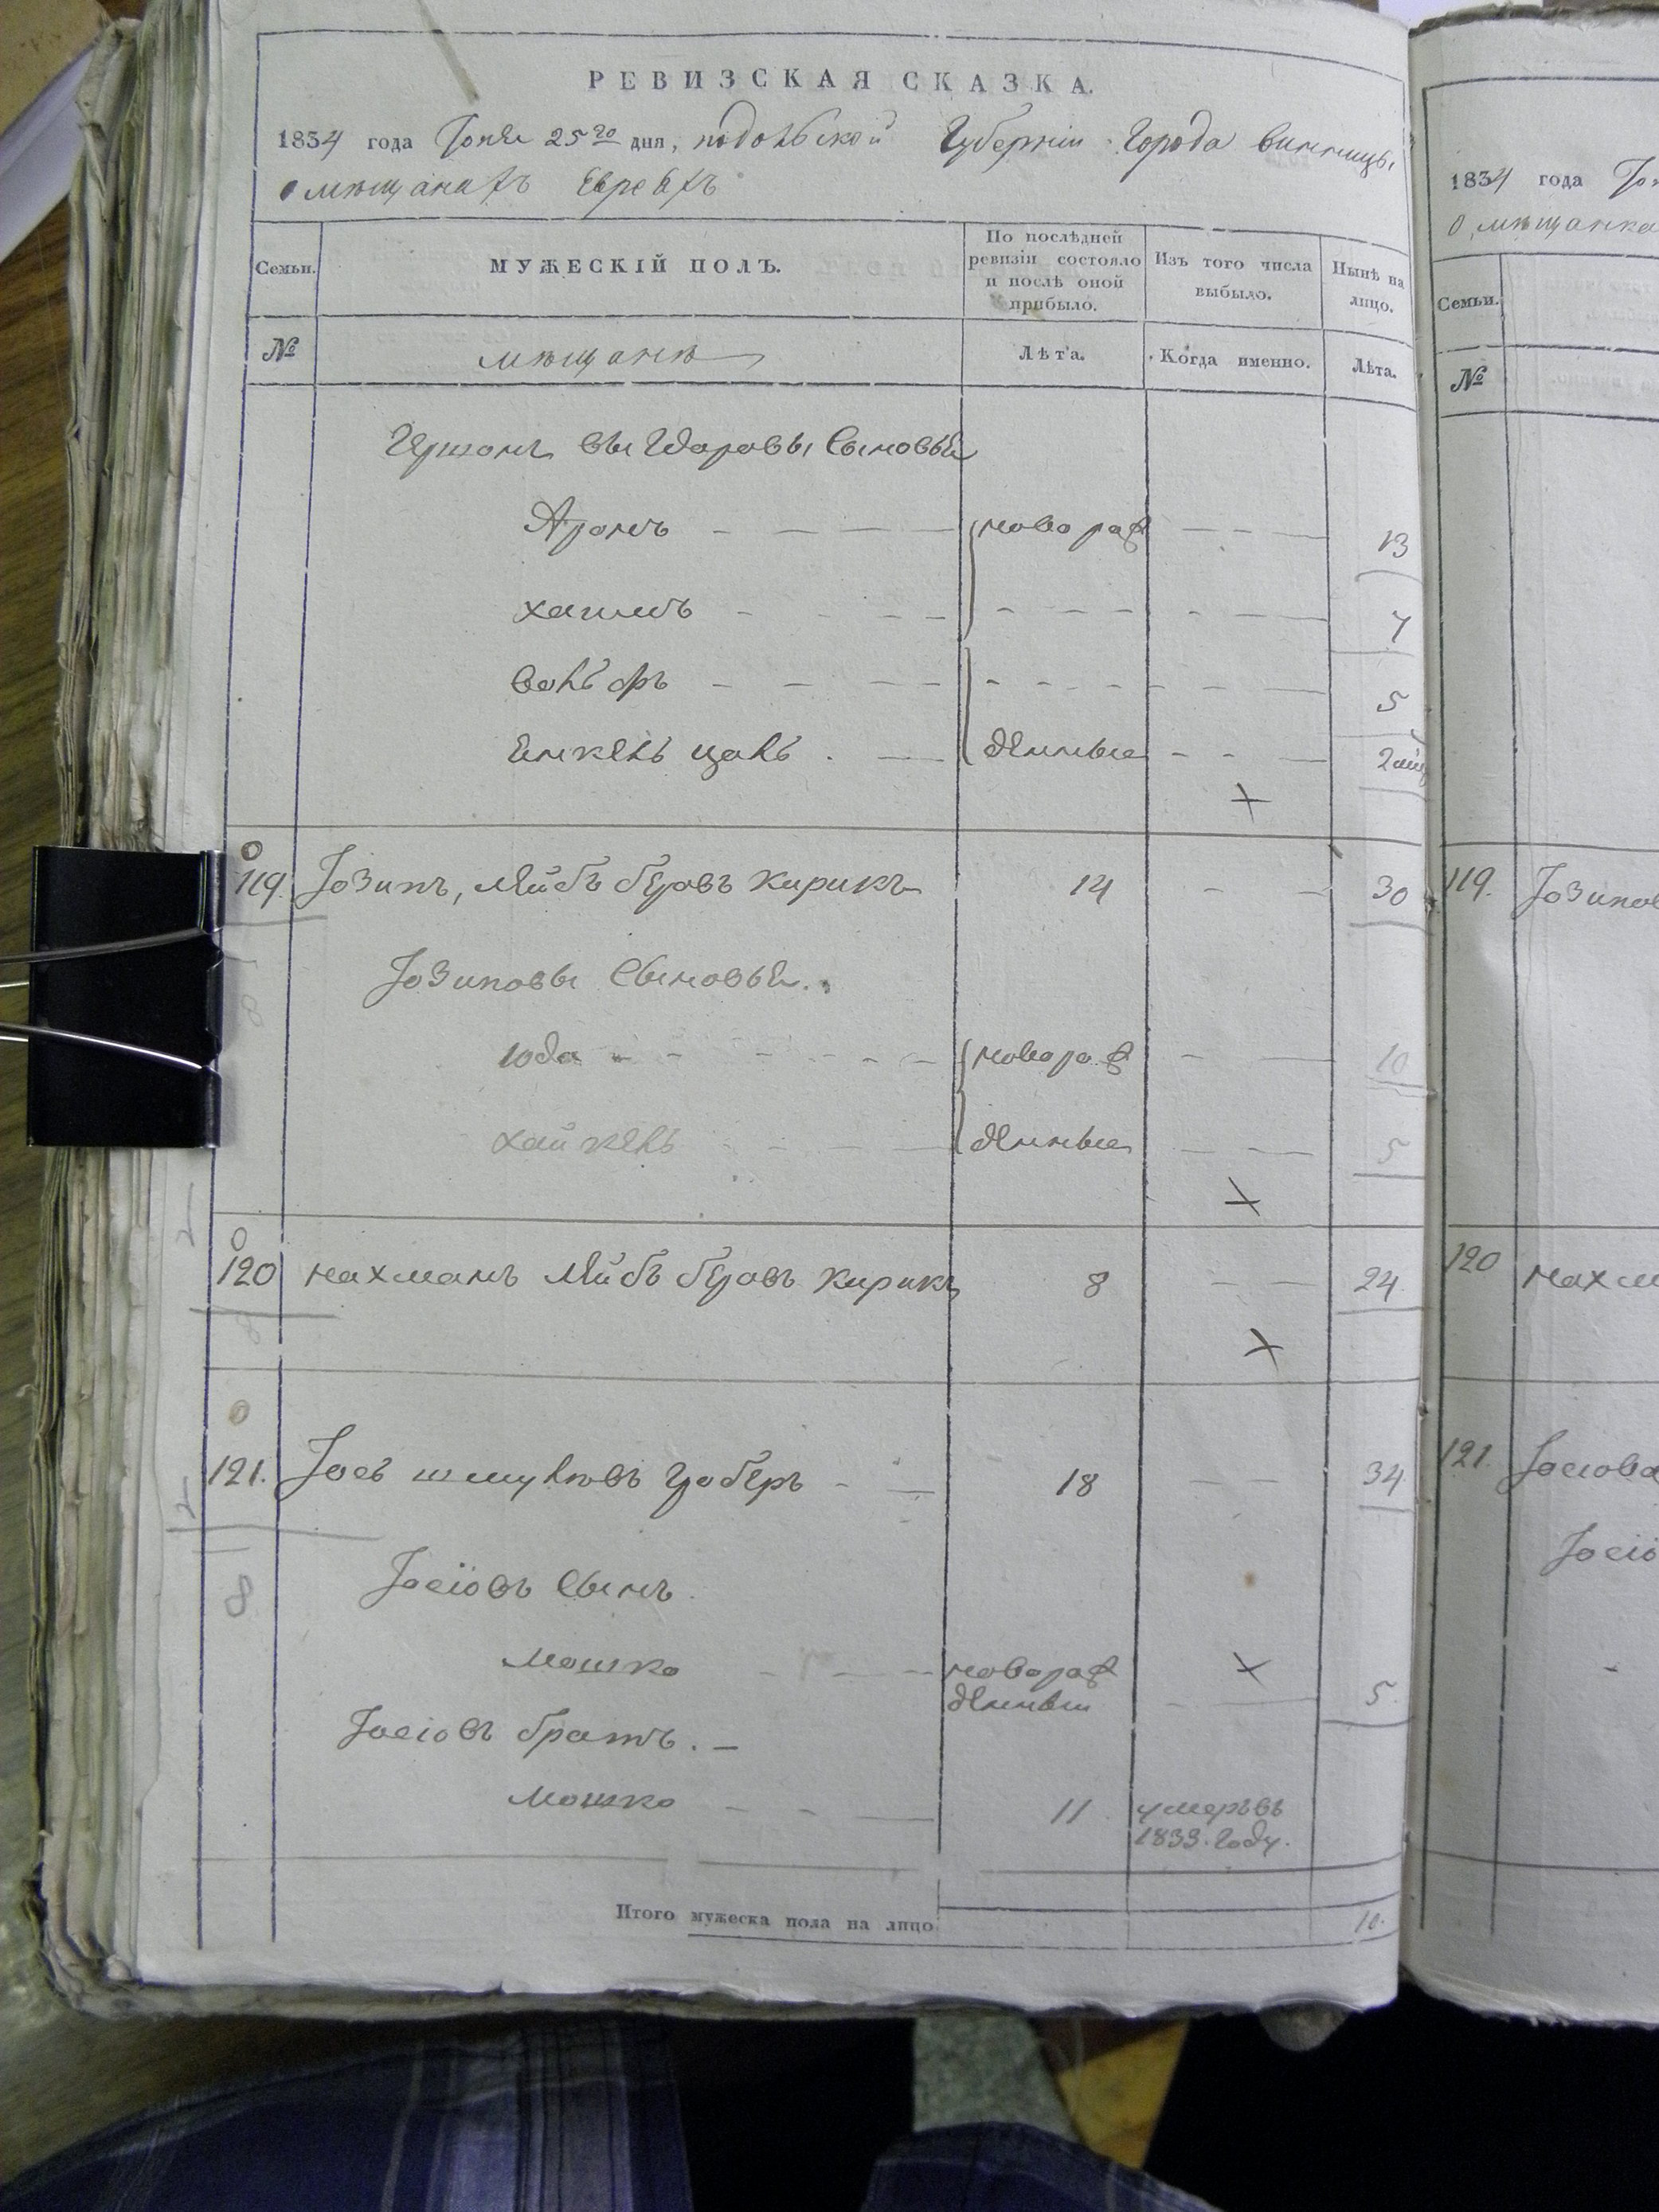 РЕВИЗСКАЯ СКАЗКА.
1834 года Іюня 25го дня, подольской Губерніи Города винницы
о мѣщанахъ Евреяхъ
Семьи. МУЖЕСКІЙ ПОЛЪ. По послѣдней ревизіи состояло и послѣ оной прибыло. Изъ того числа выбыло. Нынѣ на лицо.
№ мѣщане Лѣта. Когда именно. Лѣта.
Сыновья
Аронъ новорож 13
хаимъ 7
вольфъ 5
Енкель цаль денные 2
119. Іозипъ, Лейбъ беровъ кирикъ 14 30
Іозиповы Сыновья
юда новорож 10
хайкель денные 5
120 нахманъ Лейбъ беровъ кирикъ 8 24
121. Іось шмулювъ губеръ 18 34
Іосіовъ Сынъ
мошко новорож денный 5
Іосіовъ братъ.
мошко 11 умеръ въ 1833. году.
Итого мужеска пола на лицо 10.
1834 года
О мѣщанка
Семьи.
№
119.
120
121.